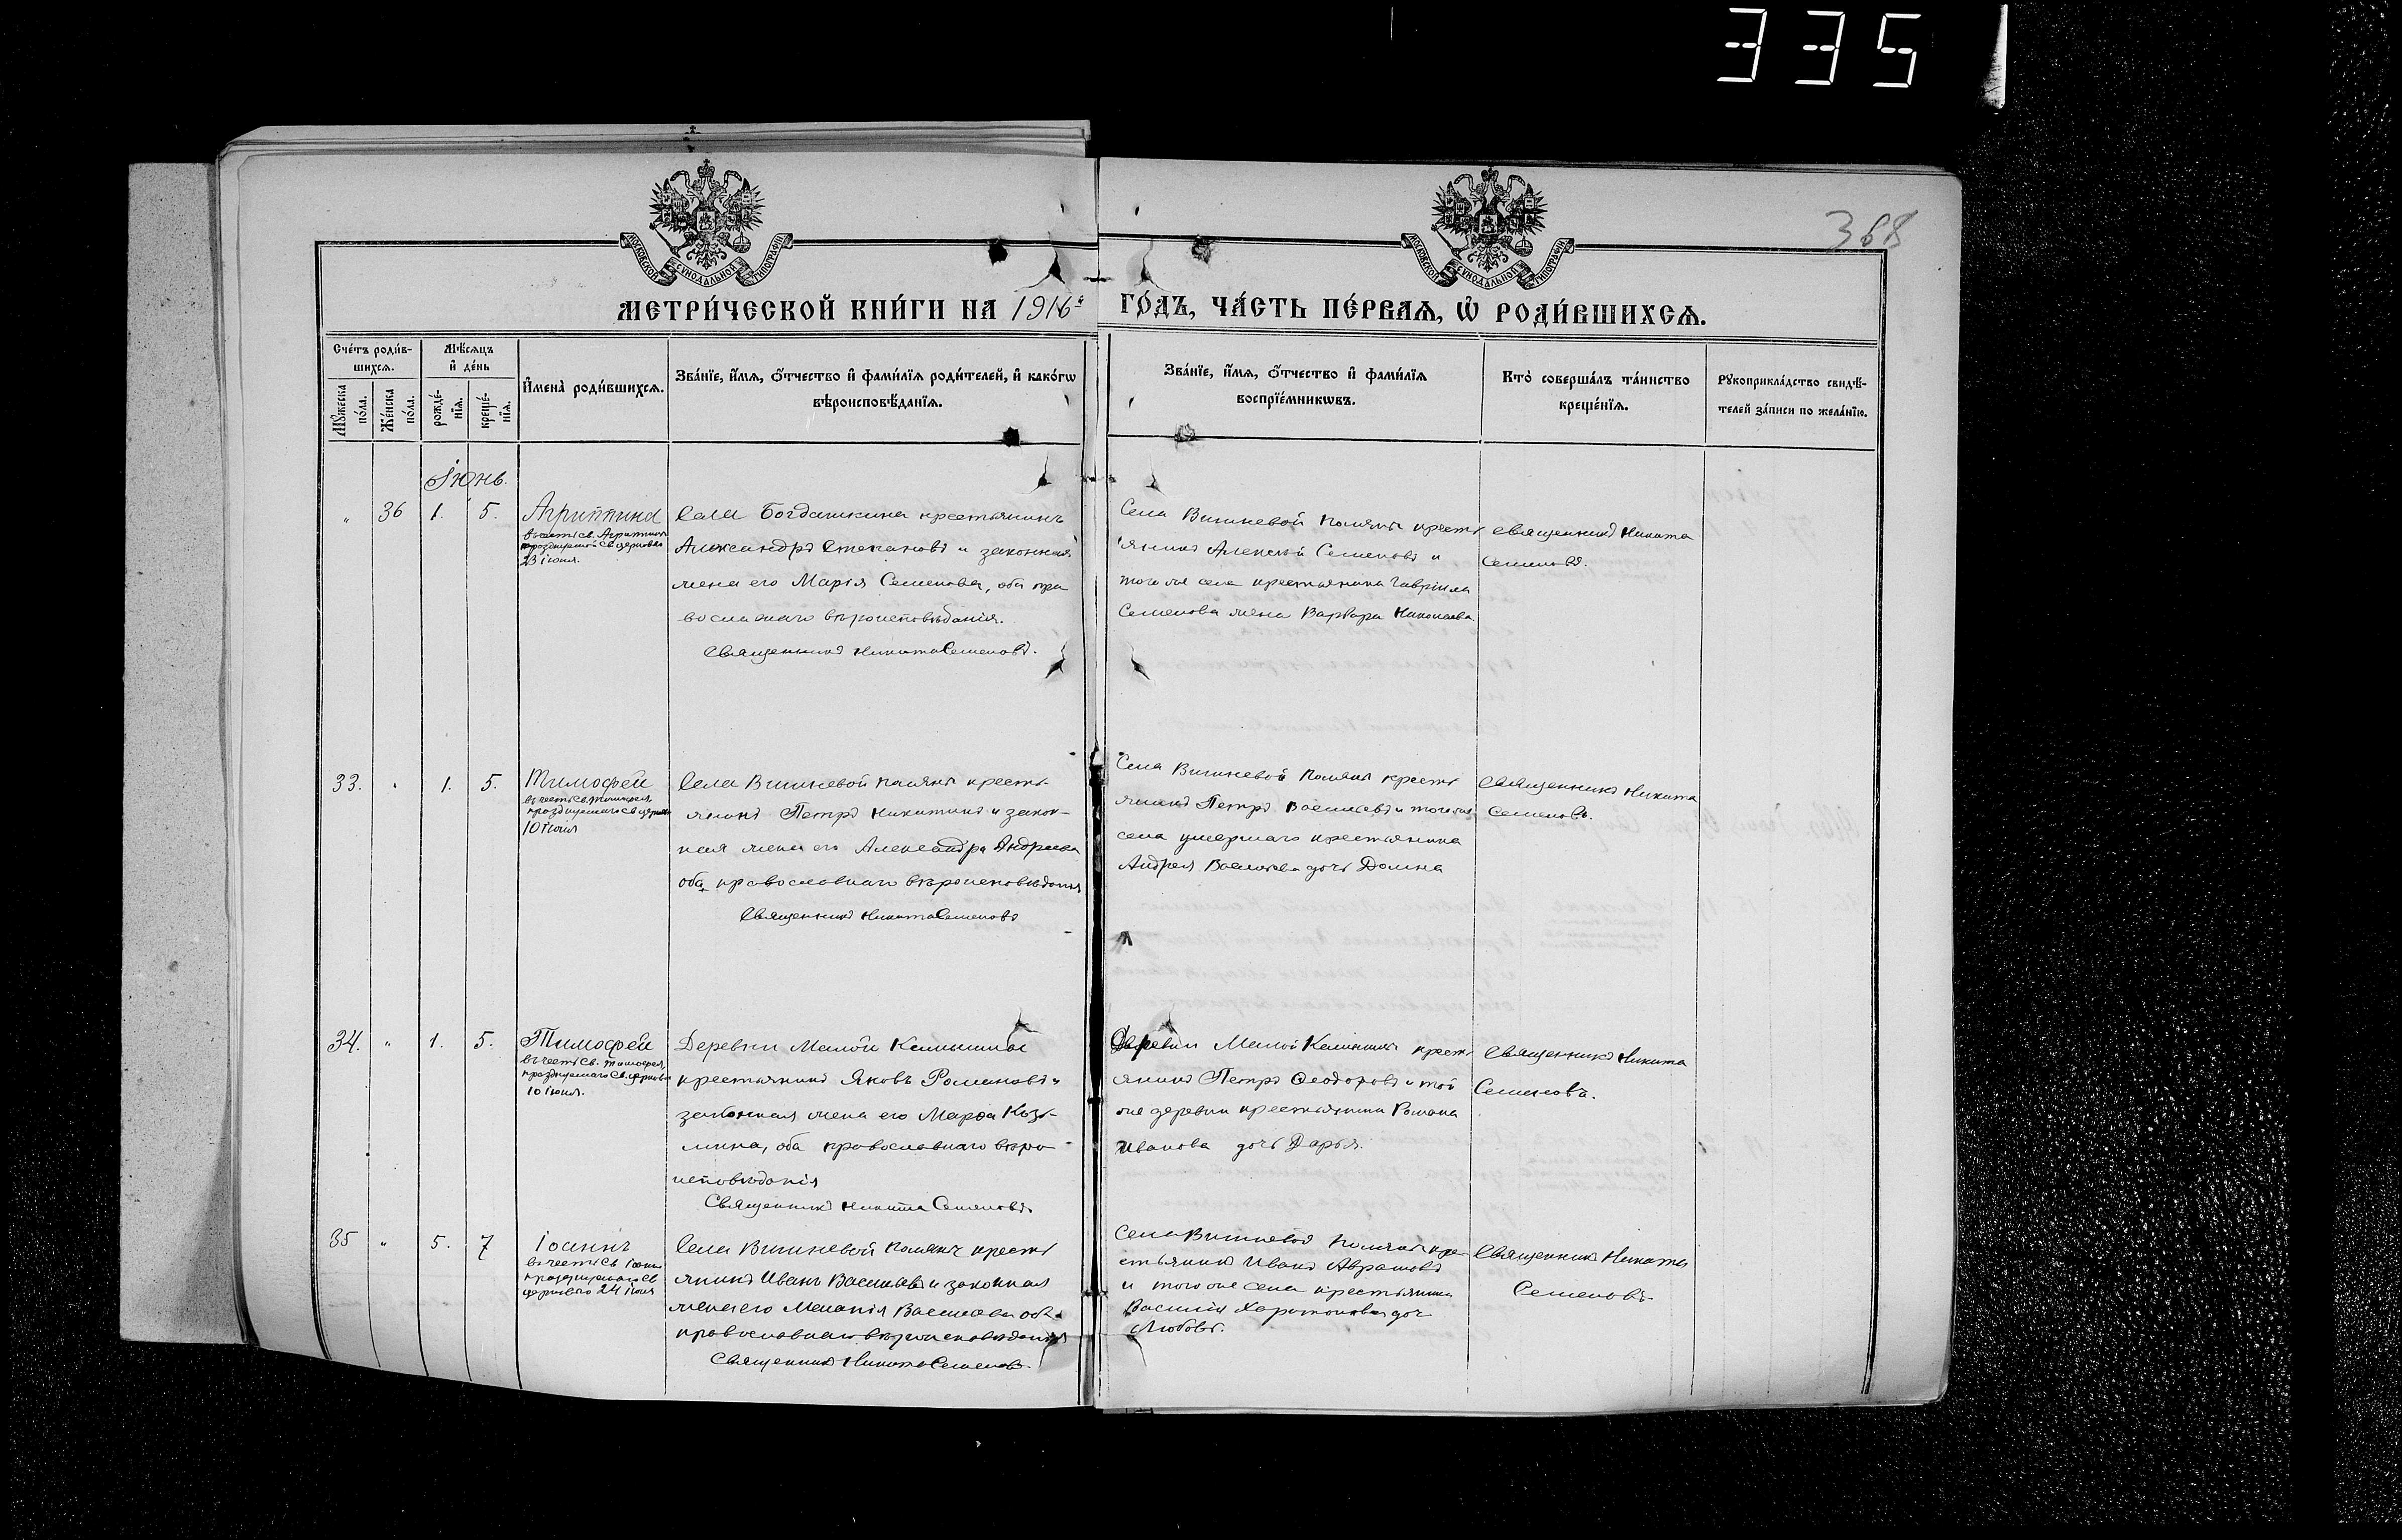 335
368
МОСКОВСКОЙ СѴНОДАЛЬНОЙ ТИПОГРАФІИ
МОСКОВСКОЙ СѴНОДАЛЬНОЙ ТИПОГРАФІИ
МЕТРИ́ЧЕСКОЙ КНИ́ГИ НА 1916й ГО́ДЪ, ЧА́СТЬ ПЕ́РВАѦ, Ѡ҆ РОДИ́ВШИХСѦ.
Сче́тъ роди́в-
шихсѧ.
Мꙋ́жеска по́ла.
Же́нска по́ла.
Мѣ́сѧцъ
и҆ де́нь
рожде́-
нїѧ.
креще́-
нїѧ.
И҆мена̀ роди́вшихсѧ.
Зва́нїе, и҆́мѧ, ѻ҆́тчество и҆ фами́лїѧ роди́телей, и҆ како́гѡ
вѣроисповѣ́данїѧ.
Зва́нїе, и҆́мѧ, ѻ҆́тчество и҆ фами́лїѧ
воспрїе́мникѡвъ.
Кто̀ соверша́лъ та́инство
креще́нїѧ.
Рꙋкоприкла́дство свидѣ́-
телей за́писи по жела́нїю.
Іюнь.
" 36 1. 5. Агриппина
въ честь св. Агриппины
празднуемой св. церковію
23 іюня.
Села Богдашкина крестьянинъ
Александръ Степановъ и законная
жена его Марія Семенова, оба пра
вославнаго вѣроисповѣданія.
Священникъ Никита Семеновъ.
Села Вишневой Поляны кресть
янинъ Алексѣй Семеновъ и
того же села крестьянина Гавріила
Семенова жена Варвара Николаева.
Священникъ Никита
Семеновъ.
33. " 1. 5. Тимофей
въ честь св. Тимофея,
празднуемаго св. церковію
10 іюня
Села Вишневой Поляны кресть-
янинъ Петръ Никитинъ и закон-
ная жена его Александра Андреева
оба православнаго вѣроисповѣданія
Священникъ Никита Семеновъ
Села Вишневой Поляны кресть
янинъ Петръ Васильевъ и того же
села умершаго крестьянина
Андрея Васильева дочь Домна
Священникъ Никита
Семеновъ.
34. " 1. 5. Тимофей
въ честь св. Тимофея,
празднуемаго св. церковію
10 іюня.
Деревни Малой
крестьянинъ Яковъ Романовъ и
законная жена его Марфа Козь-
мина, оба православнаго вѣро-
исповѣданія
Священникъ Никита Семеновъ.
Деревни Малой кресть
янинъ Петръ Ѳеодоровъ и той
же деревни крестьянина Романа
Иванова дочь Дарья.
Священникъ Никита
Семеновъ.
35 " 5. 7 Іоаннъ
въ честь св. Іоанна
празднуемаго св.
церковію 24 іюня
Села Вишневой Поляны кресть
янинъ Иванъ Васильевъ и законная
жена его Меланія Васильева оба
православнаго вѣроисповѣданія
Священникъ Никита Семеновъ.
Села Вишневой Поляны кре-
стьянинъ Иванъ Аврамовъ
и того же села крестьянина
Василія Харитонова дочь
Любовь.
Священникъ Никита
Семеновъ.